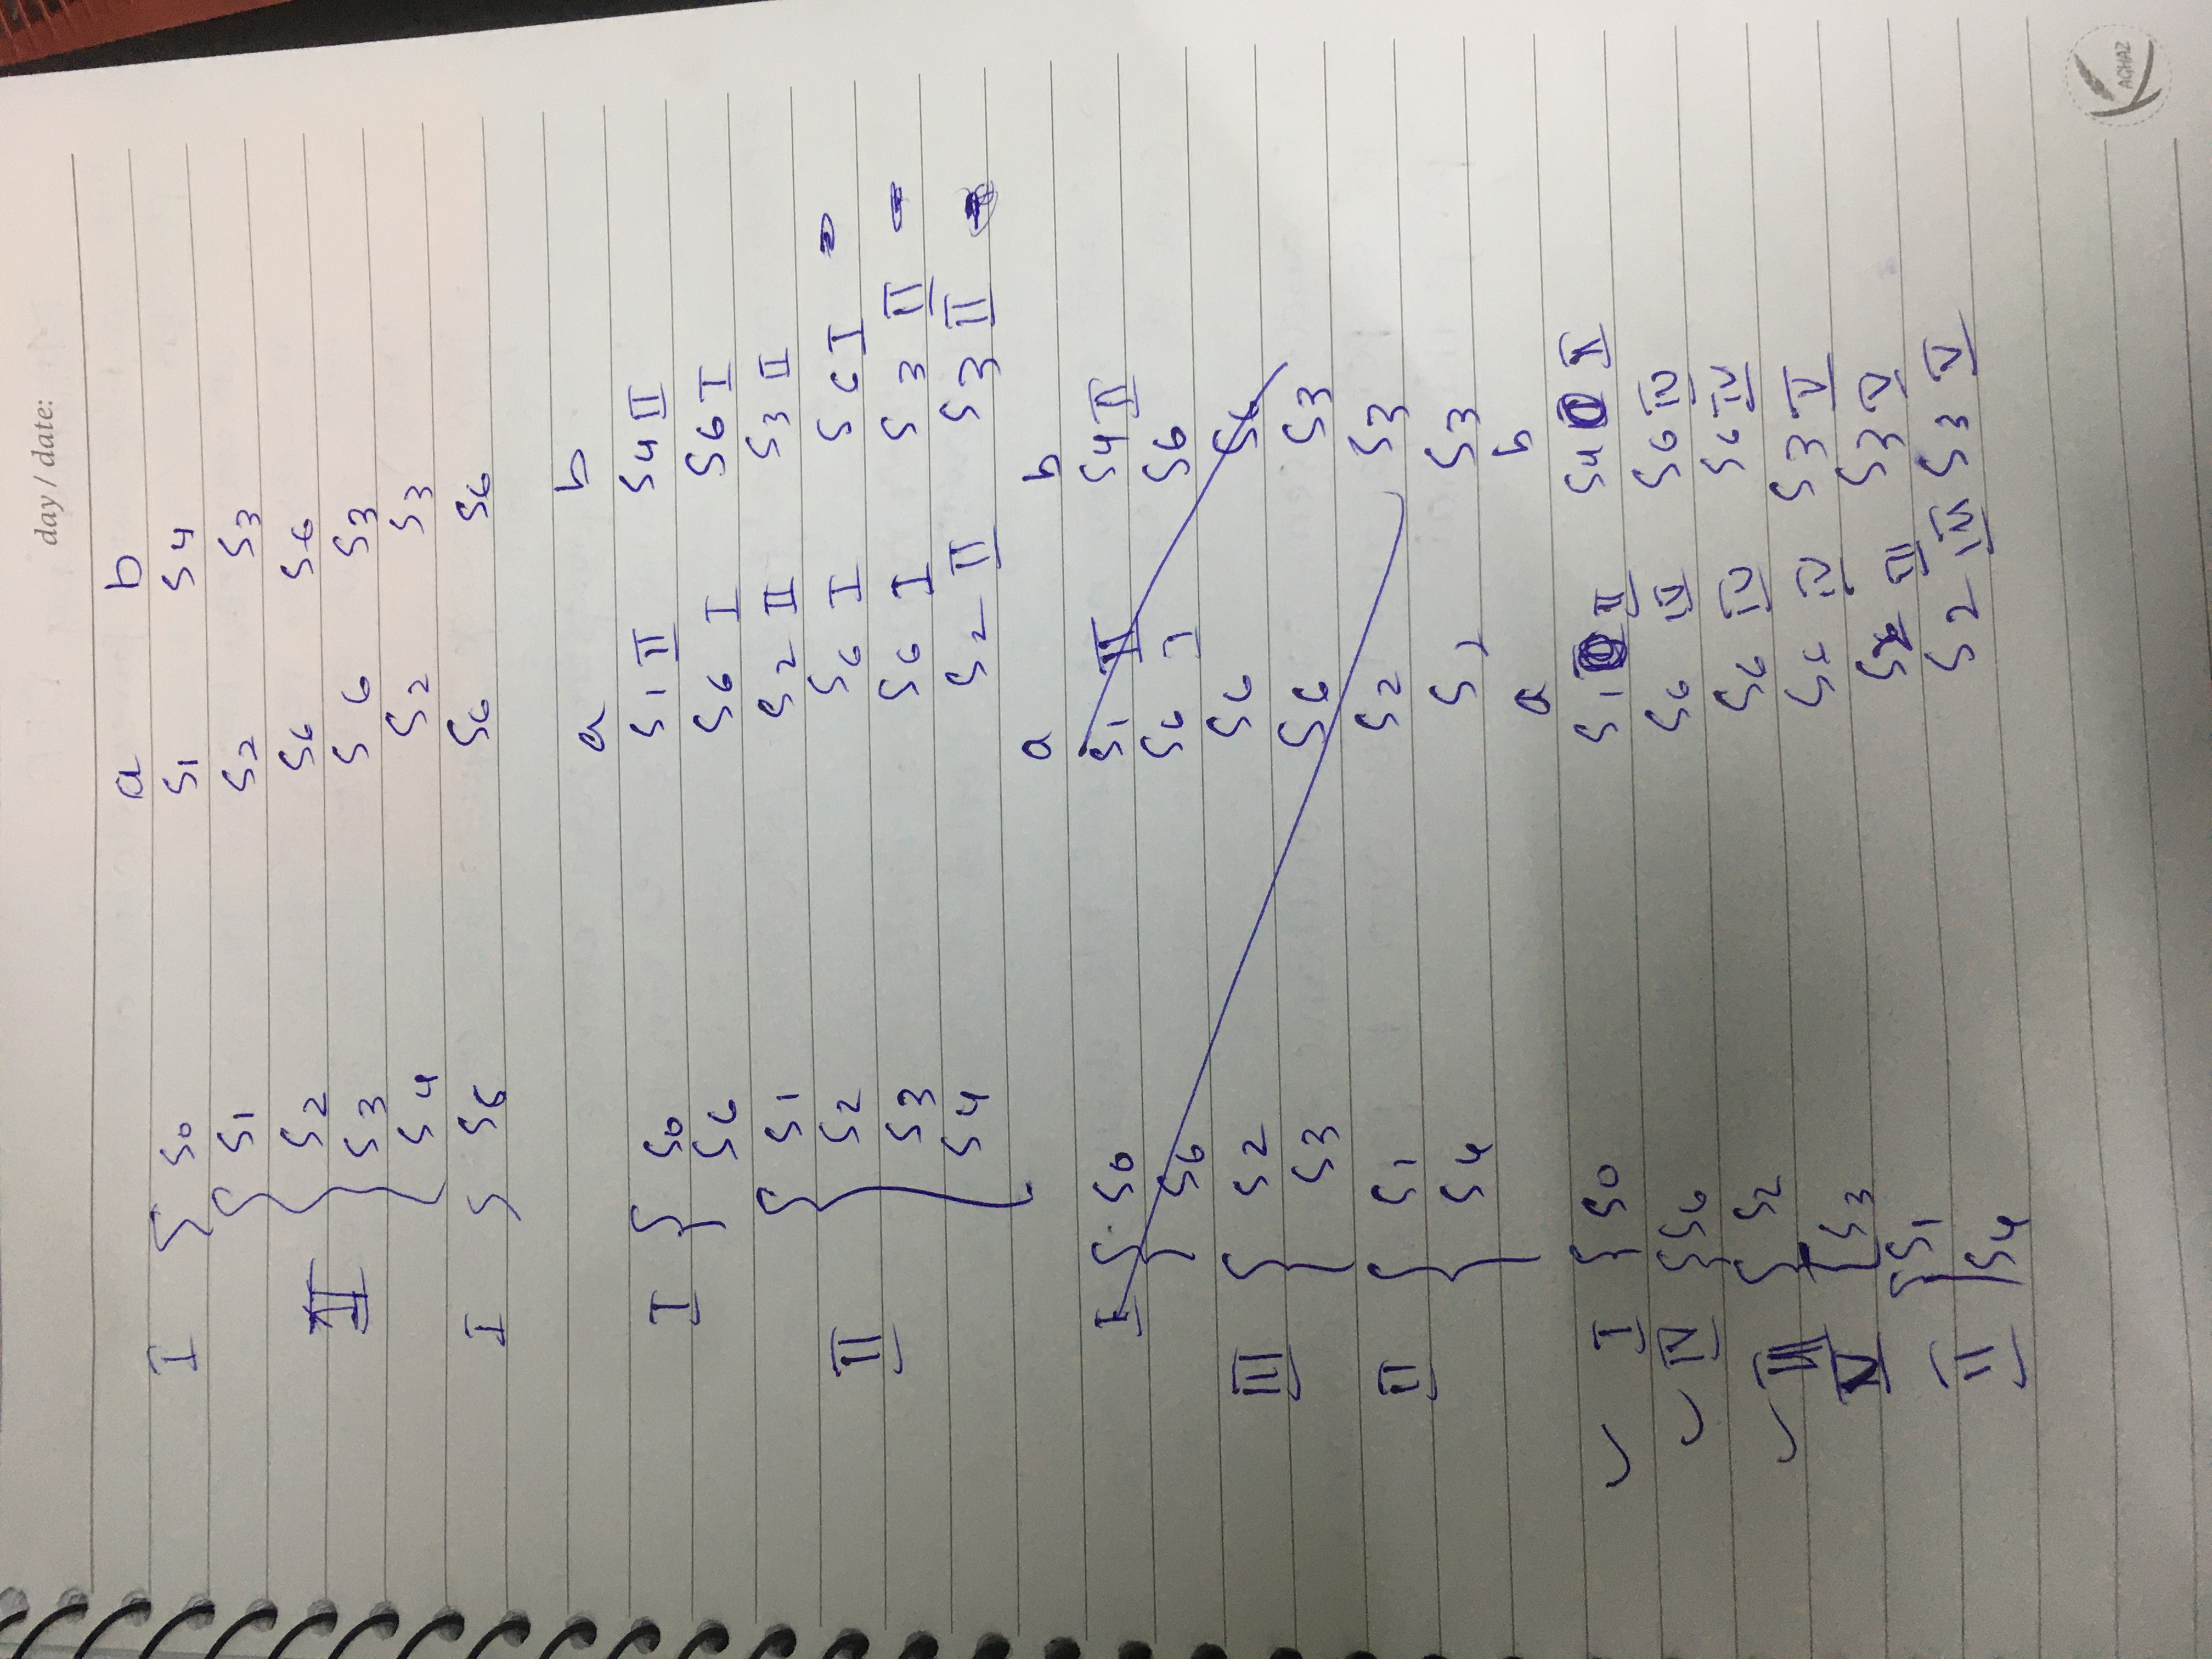 day / date:
a b
I { S0 S1 S4
{ S1 S2 S3
II S2 S6 S6
S3 S6 S3
S4 S2 S3
I } S6 S6 S6
a b
I { S0 S1 II S4 II
S6 S6 I S6 I
{ S1 S2 II S3 II
II S2 S6 I S6 I -
S3 S6 I S3 II -
S4 S2 II S3 II
a b
I { S0 S1 II S4 II
S6 S6 I S6
III { S2 S6 S6
S3 S6 S3
II { S1 S2 S3
S4 S2 S3
a b
✓ I { S0 S1 II S4 II
✓ IV { S6 S6 IV S6 IV
✓ III { S2 S6 IV S6 IV
V { S3 S6 IV S3 V
{ S1 S2 III S3 V
II S4 S2 III S3 V
KAGHAZ